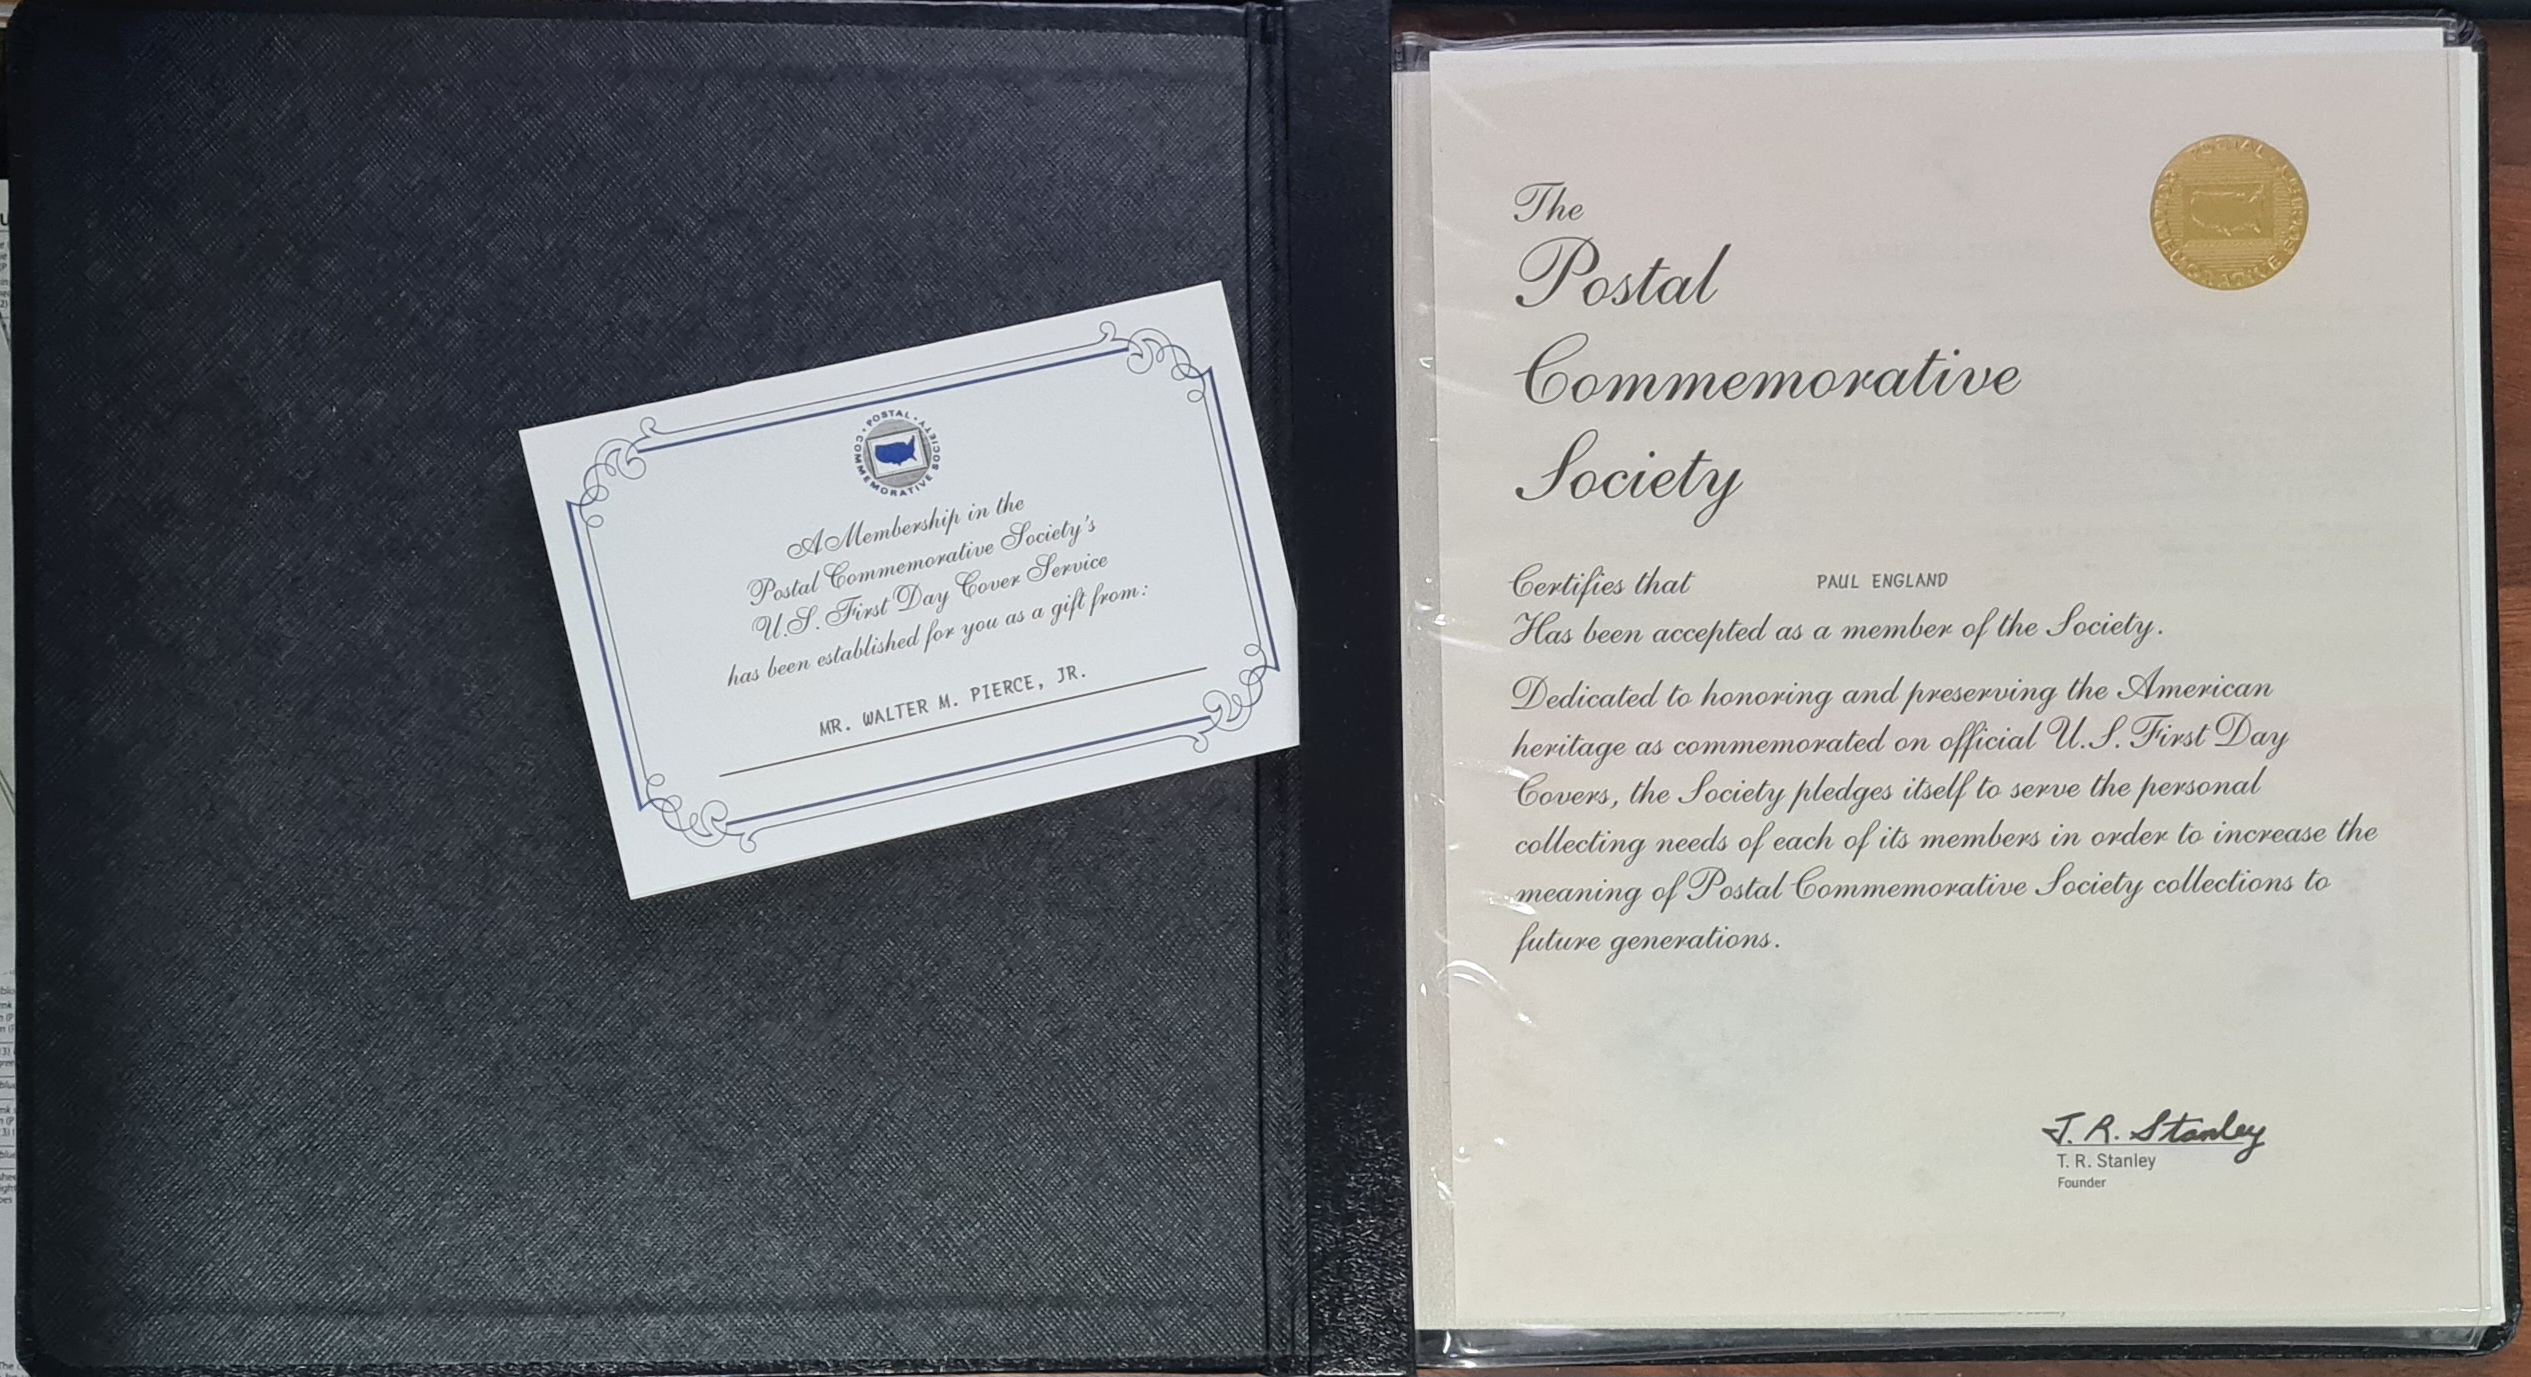 POSTAL
COMMEMORATIVE SOCIETY
A Membership in the
Postal Commemorative Society's
U.S. First Day Cover Service
has been established for you as a gift from:
MR. WALTER M. PIERCE, JR.
POSTAL COMMEMORATIVE SOCIETY
The
Postal
Commemorative
Society
Certifies that PAUL ENGLAND
Has been accepted as a member of the Society.
Dedicated to honoring and preserving the American
heritage as commemorated on official U.S. First Day
Covers, the Society pledges itself to serve the personal
collecting needs of each of its members in order to increase the
meaning of Postal Commemorative Society collections to
future generations.
T. R. Stanley
T. R. Stanley
Founder